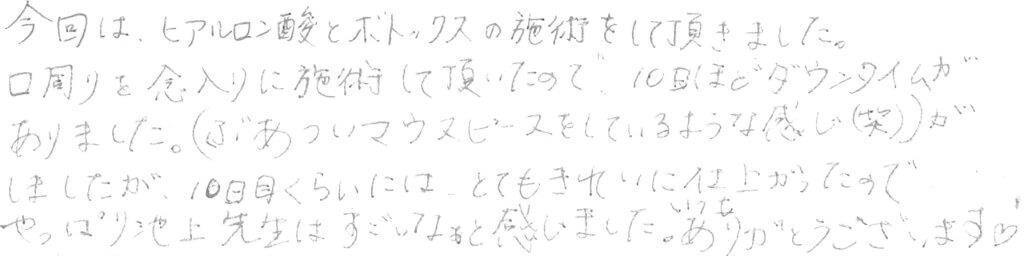 今回は、ヒアルロン酸とボトックスの施術をして頂きました。
口周りを念入りに施術して頂いたので、10日ほどダウンタイムが
ありました。(ぶあついマウスピースをしているような感じ(笑))が
しましたが、10日目くらいには、とてもきれいに仕上がったので
やっぱり池上先生はすごいなぁと感じました。いつもありがとうございます♡